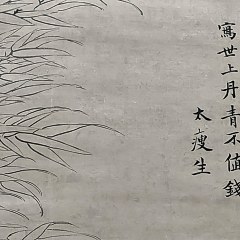 寫世上丹青不值錢
太瘦生